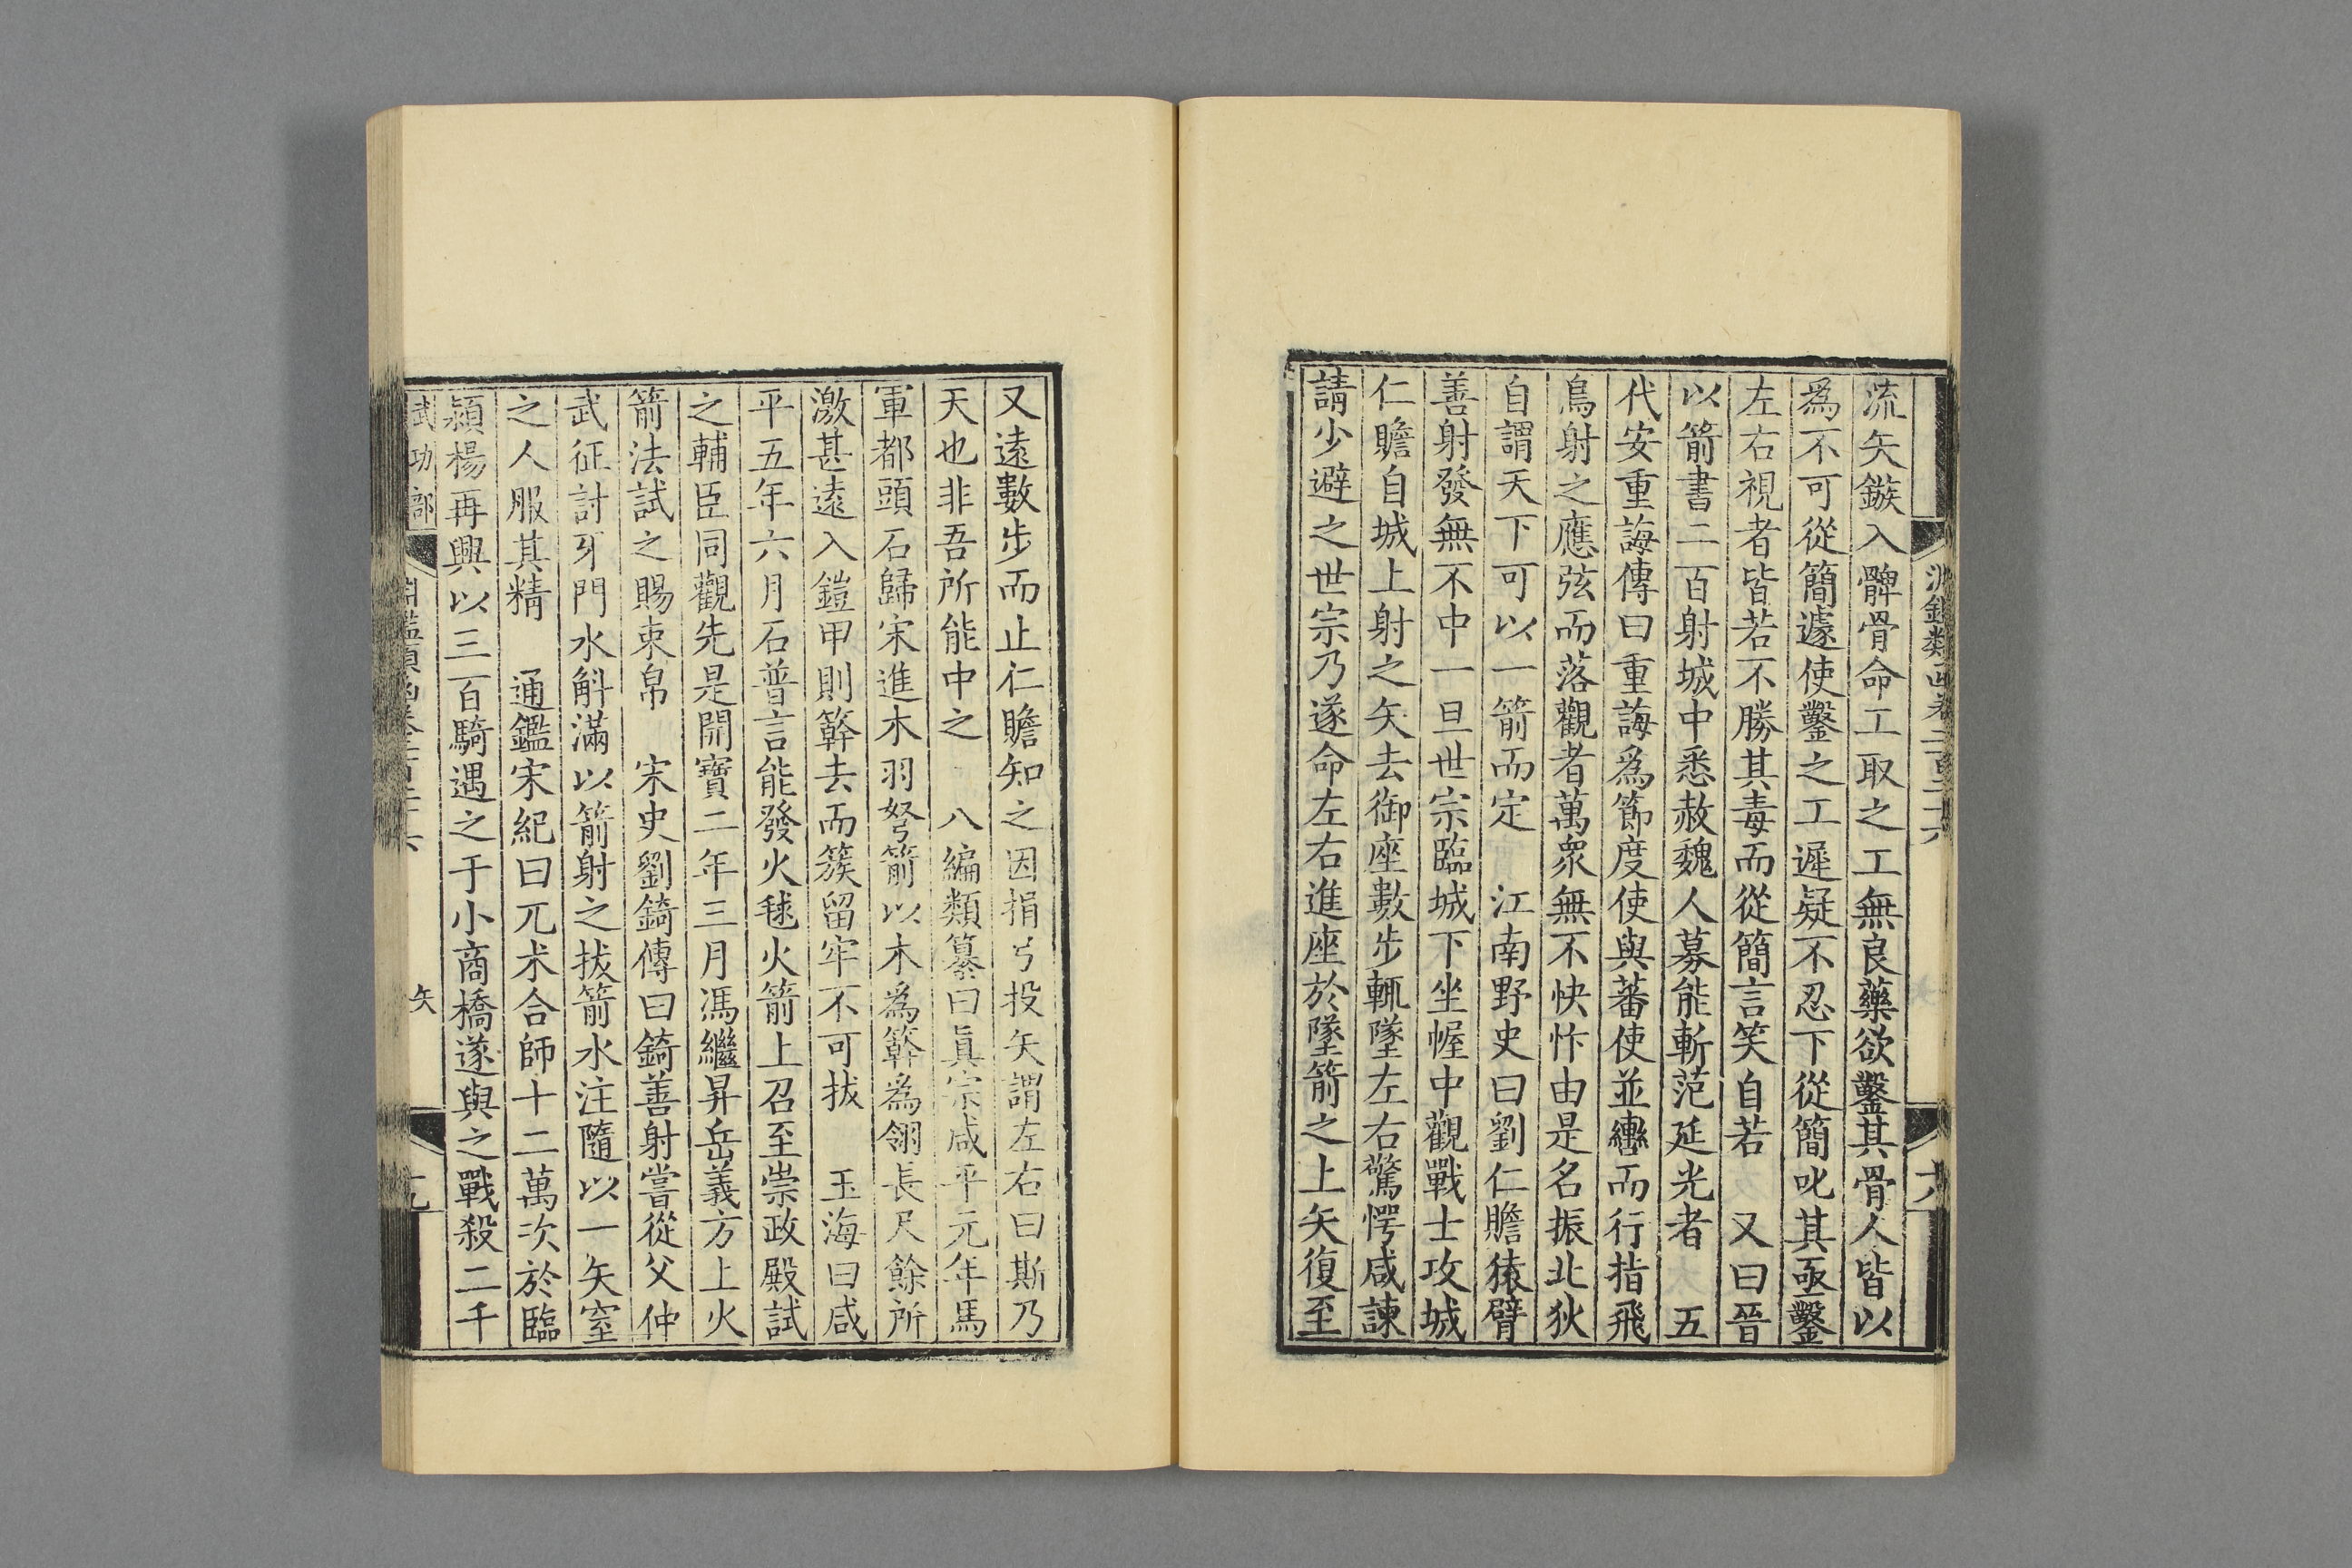 流矢鏃入髀骨命工取之工無良藥欲鑿其骨人皆以
爲不可從簡遽使鑿之工遲疑不忍下從簡叱其亟鑿
左右視者皆若不勝其毒而從簡言笑自若　又曰晉
以箭書二百射城中悉赦魏人募能斬范延光者　五
代安重誨傳曰重誨爲節度使與蕃使並轡而行指飛
鳥射之應弦而落觀者萬衆無不快忭由是名振北狄
自謂天下可以一箭而定　江南野史曰劉仁贍猿臂
善射發無不中一旦世宗臨城下坐幄中觀戰士攻城
仁贍自城上射之矢去御座數步輒墜左右驚愕咸諫
請少避之世宗乃遂命左右進座於墜箭之上矢復至
又遠數步而止仁贍知之因捐弓投矢謂左右曰斯乃
天也非吾所能中之　八編類纂曰眞宗咸平元年馬
軍都頭石歸宋進木羽弩箭以木爲簳爲翎長尺餘所
激甚遠入鎧甲則簳去而簇留牢不可拔　玉海曰咸
平五年六月石普言能發火毬火箭上召至崇政殿試
之輔臣同觀先是開寶二年三月馮繼昇岳義方上火
箭法試之賜束帛　宋史劉錡傳曰錡善射嘗從父仲
武征討牙門水斛滿以箭射之拔箭水注隨以一矢窒
之人服其精　通鑑宋紀曰兀朮合師十二萬次於臨
潁楊再興以三百騎遇之于小商橋遂與之戰殺二千
武功部
矢